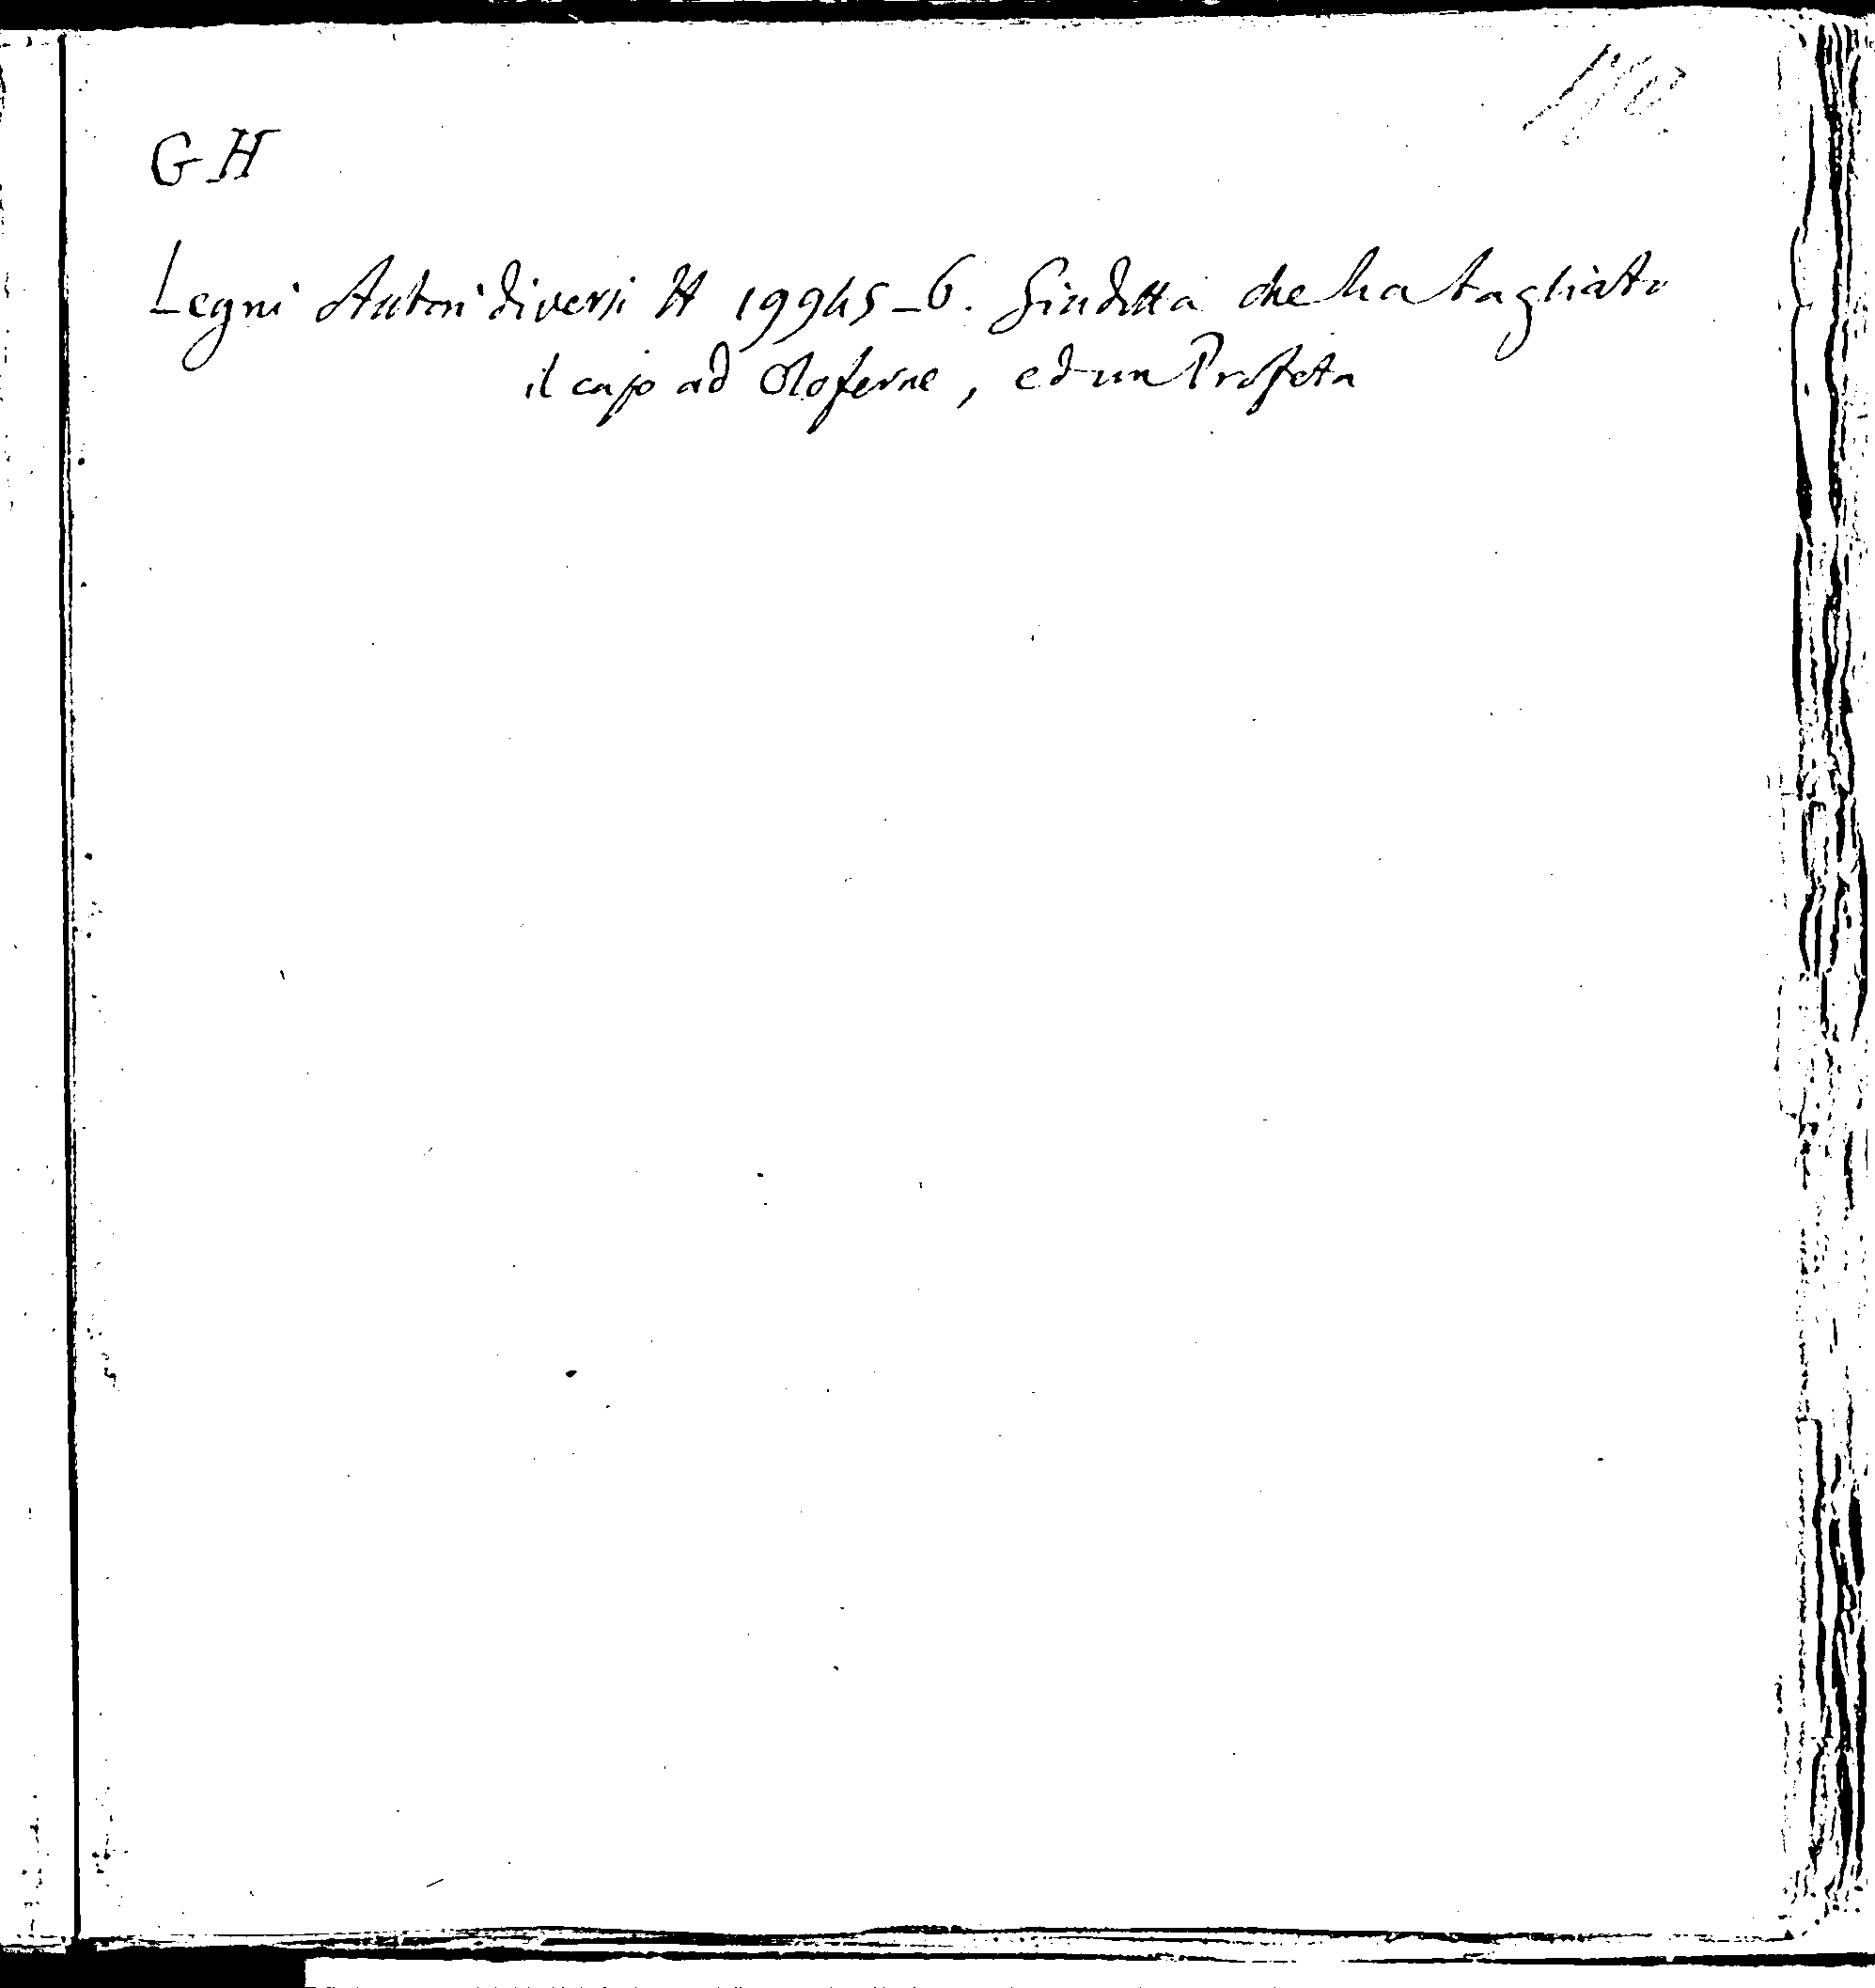 G H
Legni Autori diversi H 19945_6. Giuditta che ha tagliato
il capo ad Oloferne, ed un Profeta